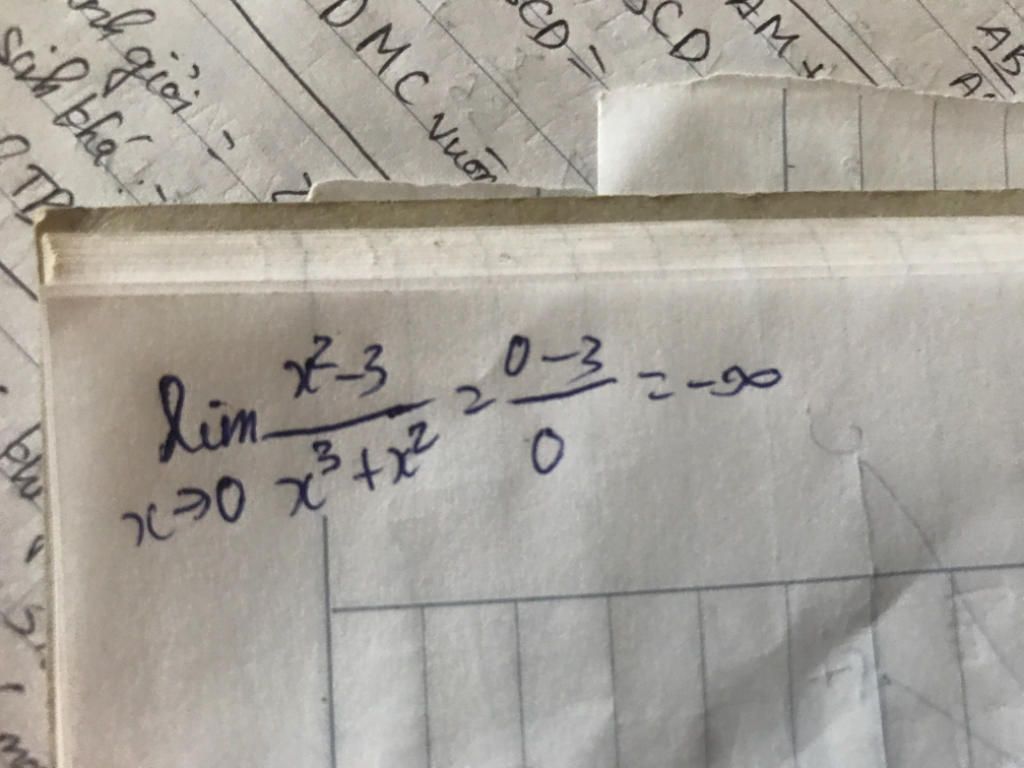 nh giỏi
sinh khá
DMC vuôn
SCD =
SCD
AM
AB
lim x→0 (x²-3)/(x³+x²) = (0-3)/0 = -∞